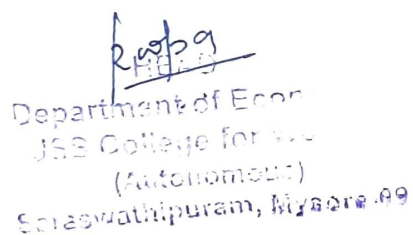 HEAD
Department of Econ
JSS College for
(Autonomous)
Saraswathipuram, Mysore-09